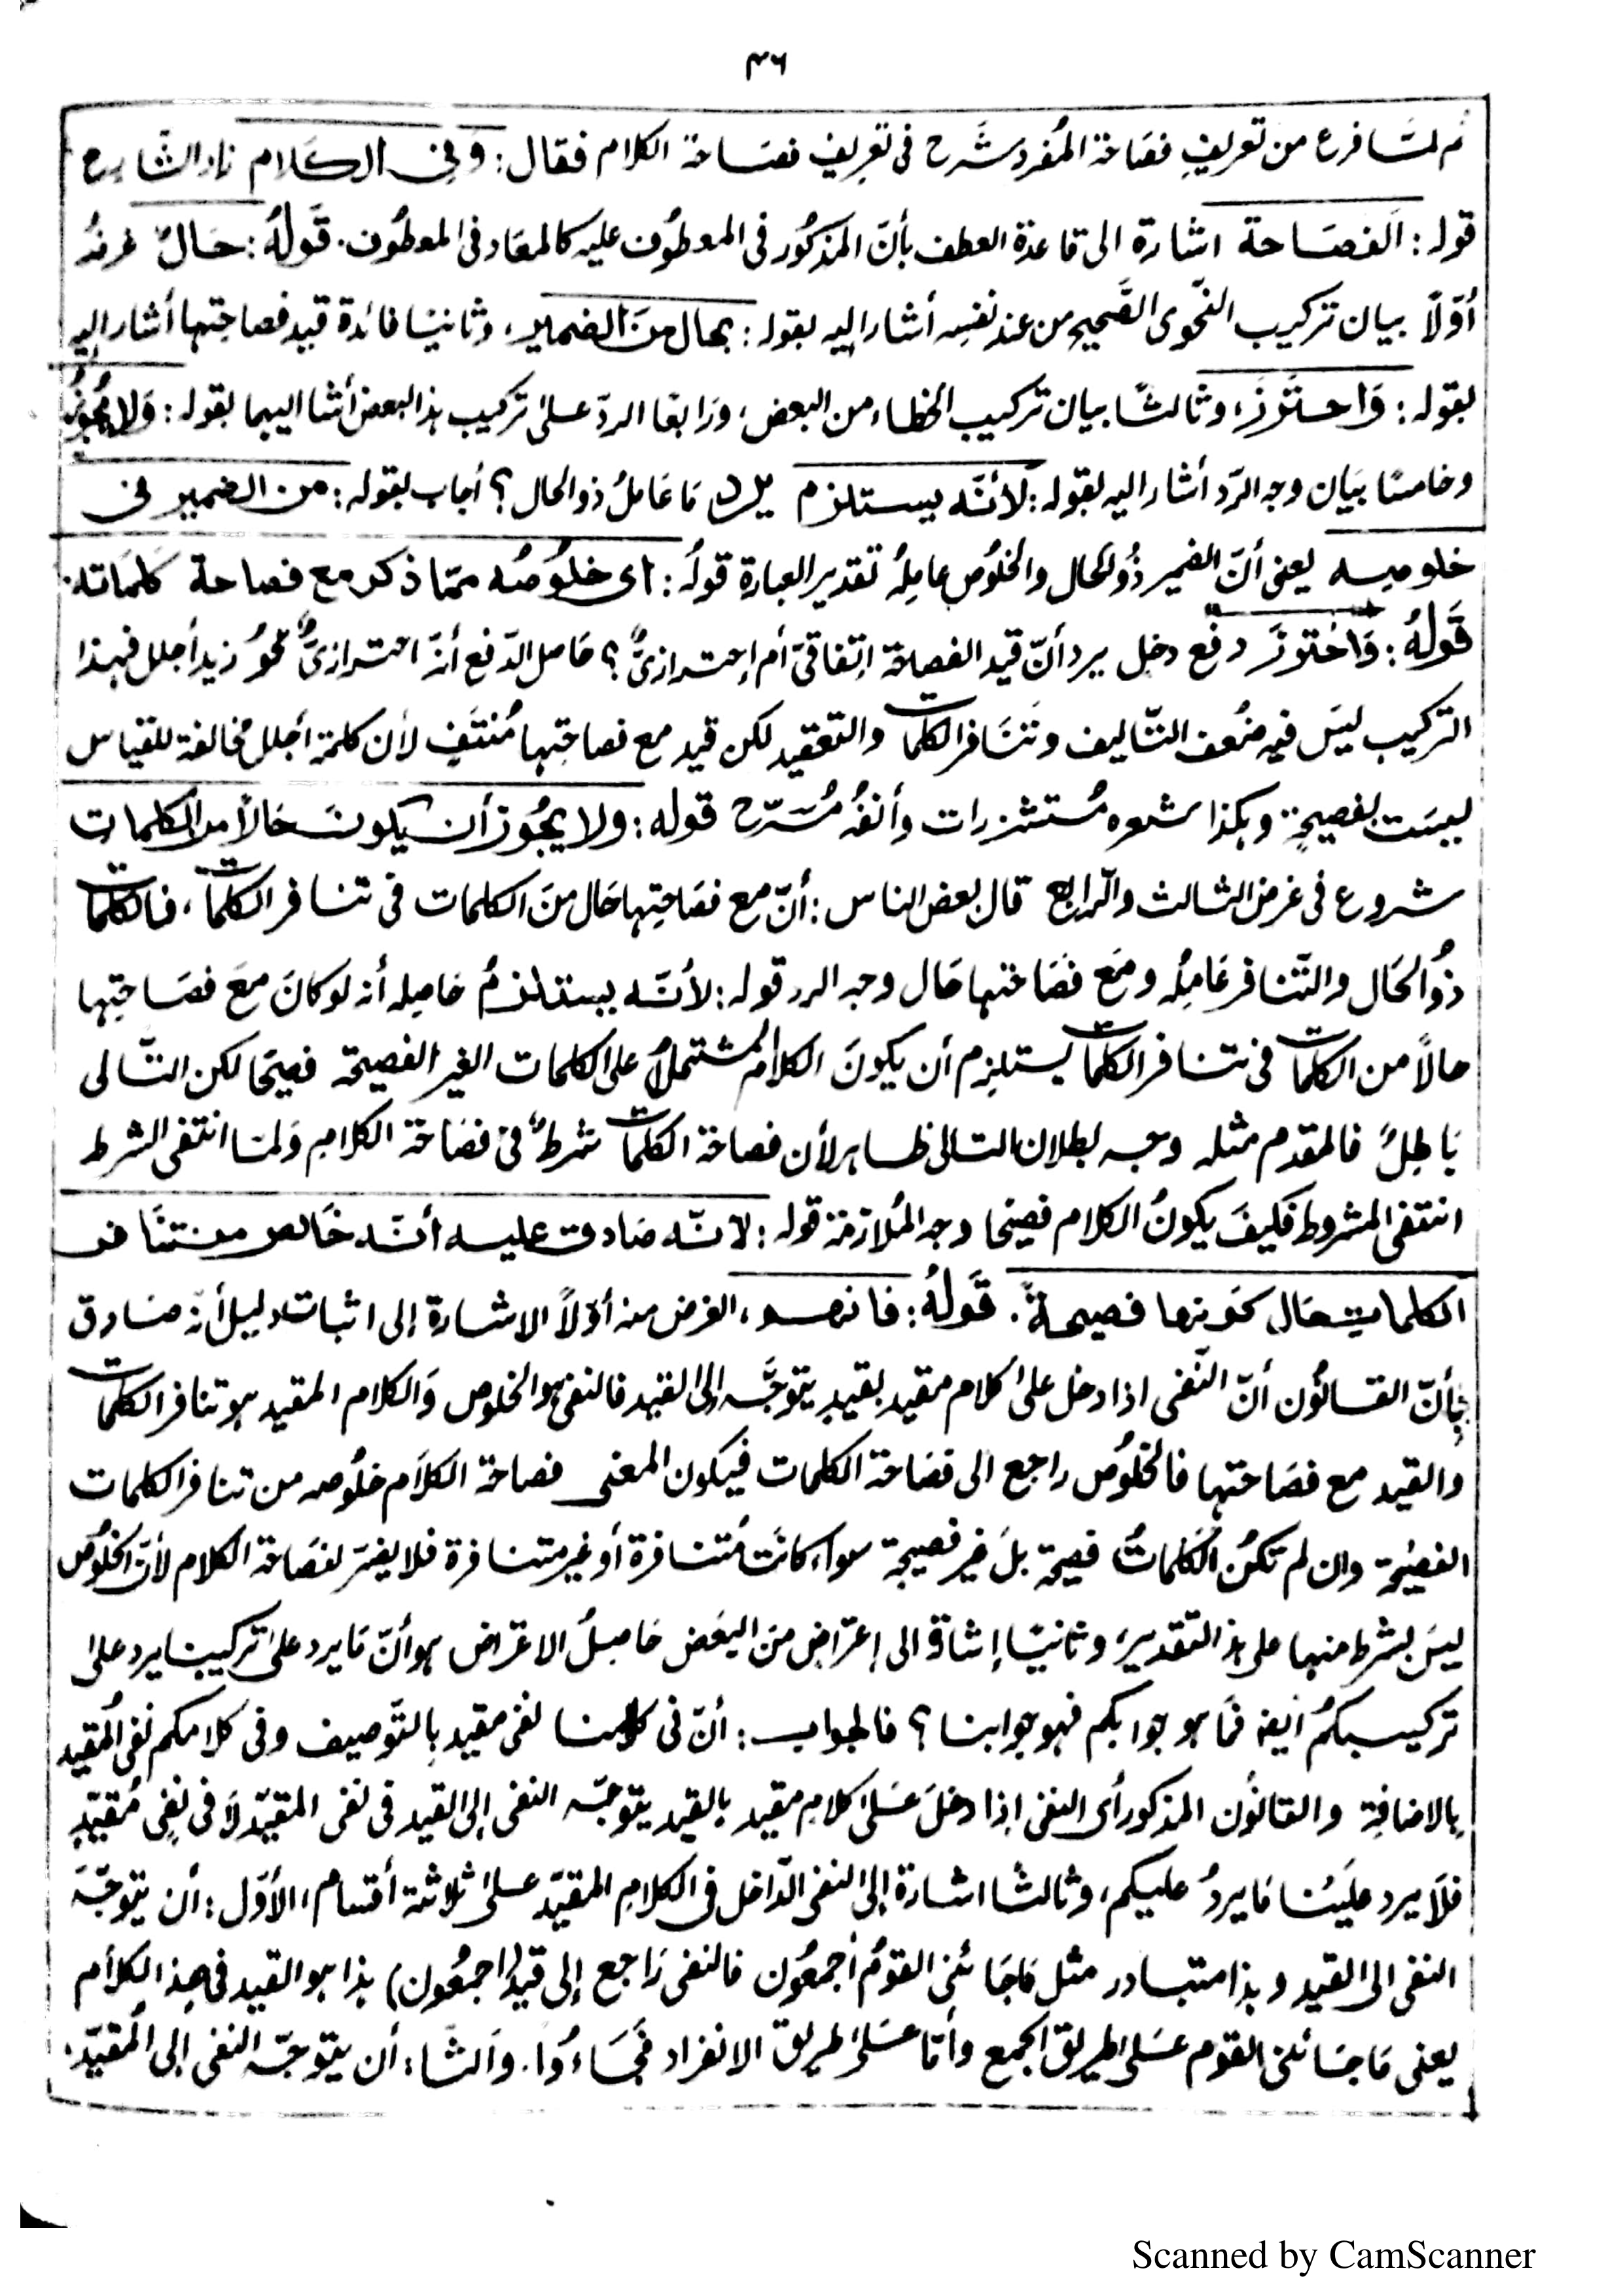 ٣٦
ثم لمّا فرغ من تعريفِ فصَاحة المُفرد شَرح فى تعريف فصَاحة الكلام فقال: وفى الكلام زاد الشارح
قوله: اَلفصَاحة اشارة الى قاعدة العطف بأنّ المذكُور فى المعطُوف عليه كالمعَاد فى المعطُوف. قَولُهُ: حَالٌ غرضُه
أوّلاً بيان تركيب النّحوى الصَّحيح من عند نفسِه أشار اليه بقوله: بحال منَ الضمير، وثانيًا فائدة قيد فصاحتِها أشار إليه
بقوله: وَاحترَزَ، وثالثًا بيان تركيب الخطاء من البعض، ورَابعًا الردّ علىٰ تركيب هذا البعض أشا اليهما بقوله: وَلا يجُوزُ
وخامسًا بيَان وجه الرّد أشار اليه بقوله: لأنّه يستلزم يرد مَا عَاملُ ذو الحال؟ أجاب بقوله: من الضمير فى
خلوصِه يعنى أنّ الضمير ذُو الحال والخلُوص عامِلُه تقدير العبارة قولُه: أى خلُوصُه ممّا ذكر مع فصاحة كلمَاته.
قَولُهُ: وَاحْترزَ دفع دخل يرد أنّ قيد الفصاحة اتّفاقىّ أم احترازىٌّ؟ حَاصل الدّفع أنّه احترازىٌّ نحوُ زيد أجلل فهذا
التركيب ليسَ فيه ضُعف التّاليف وتَنَافر الكلمات والتعقيد لكن قيد مع فصاحتِها مُنتفٍ لأن كلمة أجلل مخالفة للقياس
ليسَت بفصيحةٍ وهكذا شعره مُستشزرات وأنفُه مُسَرّج قوله: ولا يجُوز أن يكونَ حَالاً من الكلمات
شروع فى غرض الثالث والرّابع قال بعض الناس: أنّ مع فصَاحتِها حَال منَ الكلمات فى تنافر الكلمات، فالكلمات
ذُو الحَال والتّنافر عَامِلُه ومَع فصَاحتها حَال وجه الرد قوله: لأنّه يستلزمُ حَاصِله أنه لو كانَ معَ فصَاحتِها
حالاً من الكلمات فى تنافر الكلمات يستلزم أن يكونَ الكلامُ المشتملُ على الكلمات الغير الفصيحة فصيحًا لكن التّالى
بَاطِلٌ فالمقدم مثله وجه بطلان التالى ظاهر لأن فصاحة الكلمات شرطٌ فى فصَاحة الكلامِ وَلمّا انتفى الشرط
انتفى المشروط فكيفَ يكونُ الكلام فصيحًا وجه المُلازمة قوله: لأنّه صَادق عليه أنّه خَالص من تنَافر
الكلمات حَال كَونها فصيحةً. قَولُهُ: فافهم، الغرض منه أوّلاً الاشارة إلى اثبات دليل أنّه صَادق
بأنّ القانُون أنّ النّفى اذا دخل علىٰ كلام مقيد بقيدٍ يتوجَّه إلى القيد فالنفى هو الخلوص وَالكلام المقيد هو تنافر الكلمات
والقيد مع فصَاحتها فالخلُوص راجع الى فصَاحة الكلمات فيكون المعنى فصاحة الكلَام خلُوصه من تنافر الكلمات
الفصيْحة وان لم تكُن الكَلماتُ فصيحة بلْ غير فصيحة سواء كانَت مُتنافرة أو غير متنافرة فلا يضرّ لفصَاحة الكلام لأنّ الخلُوص
ليسَ بشرط منها على هذا التقدير، وثانيًا إشاة الى إعتراض منَ البعَض حَاصِلُ الاعتراض هو أنّ مَا يرد علىٰ تركيبنا يرد علىٰ
تركيبكمُ ايضًا فمَا هو جوابكم فهو جوابنا؟ فالجواب: أنّ فى كلامنا نفى مقيد بالتّوصيف وفى كلامكم نفى المُقيد
بالاضافة والقانُون المذكور أى النفى إذا دخلَ عَلىٰ كلامِ مقيد بالقيد يتوجّه النفى إلى القيد فى نفى المقيّد لَا فى نفىِ مُقيّدٍ
فلَا يرد علَينا مَا يردُ عليكم، وثالثا اشارة إلى النفى الدّاخل فى الكلامِ المقيّد علىٰ ثلاثة أقسام، الأوّل: أن يتوجّهَ
النفى الى القيد وهذا متبادر مثل مَا جَائنى القومُ أجمعُون فالنفى رَاجع إلى قيد (اجمعُون) هذا هو القيد فى هذا الكلام
يعنى مَا جَائنى القوم عَلىٰ طريق الجمع وأمّا عَلىٰ طريق الانفراد فجَاءوُا. والثا: أن يتوجّه النفى إلى المُقيّد.
Scanned by CamScanner